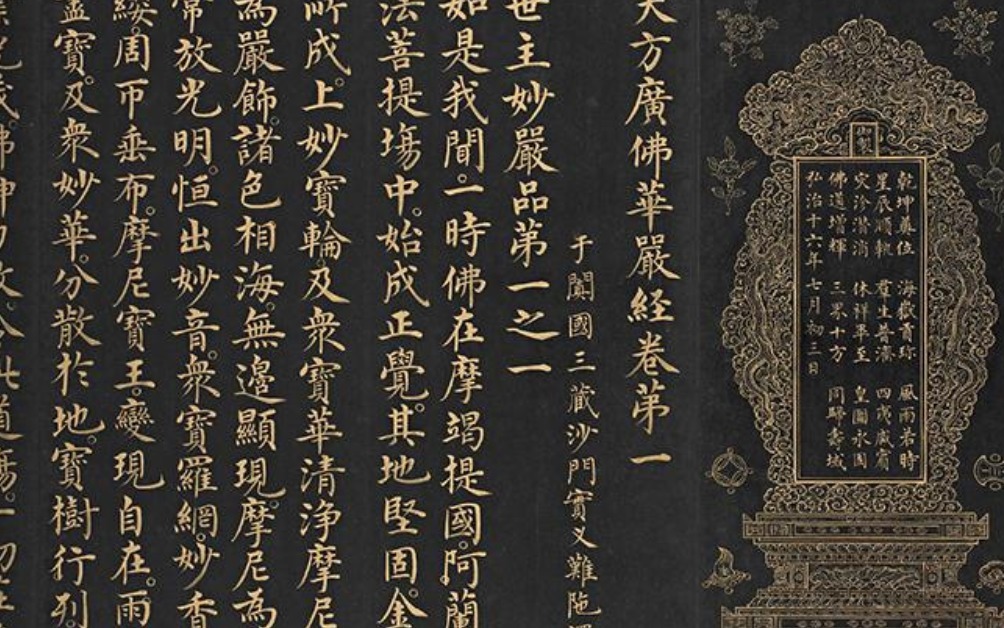 御製
乾坤奠位 海嶽貢珍 風雨若時
星辰順軌 羣生普濟 四夷咸賓
災沴潛消 休祥畢至 皇圖永固
佛道增輝 三界十方 同歸壽域
弘治十六年七月初三日
大方廣佛華嚴経卷第一
于闐國三藏沙門實叉難陁
世主妙嚴品第一之一
如是我聞。一時佛在摩竭提國。阿蘭
法菩提場中。始成正覺。其地堅固。金
所成。上妙寶輪及衆寶華清淨摩尼
為嚴飾。諸色相海。無邊顯現。摩尼為
常放光明。恒出妙音。衆寶羅網。妙香
綬。周帀垂布。摩尼寶王。變現自在。雨
盡寶。及衆妙華。分散於地。寶樹行列